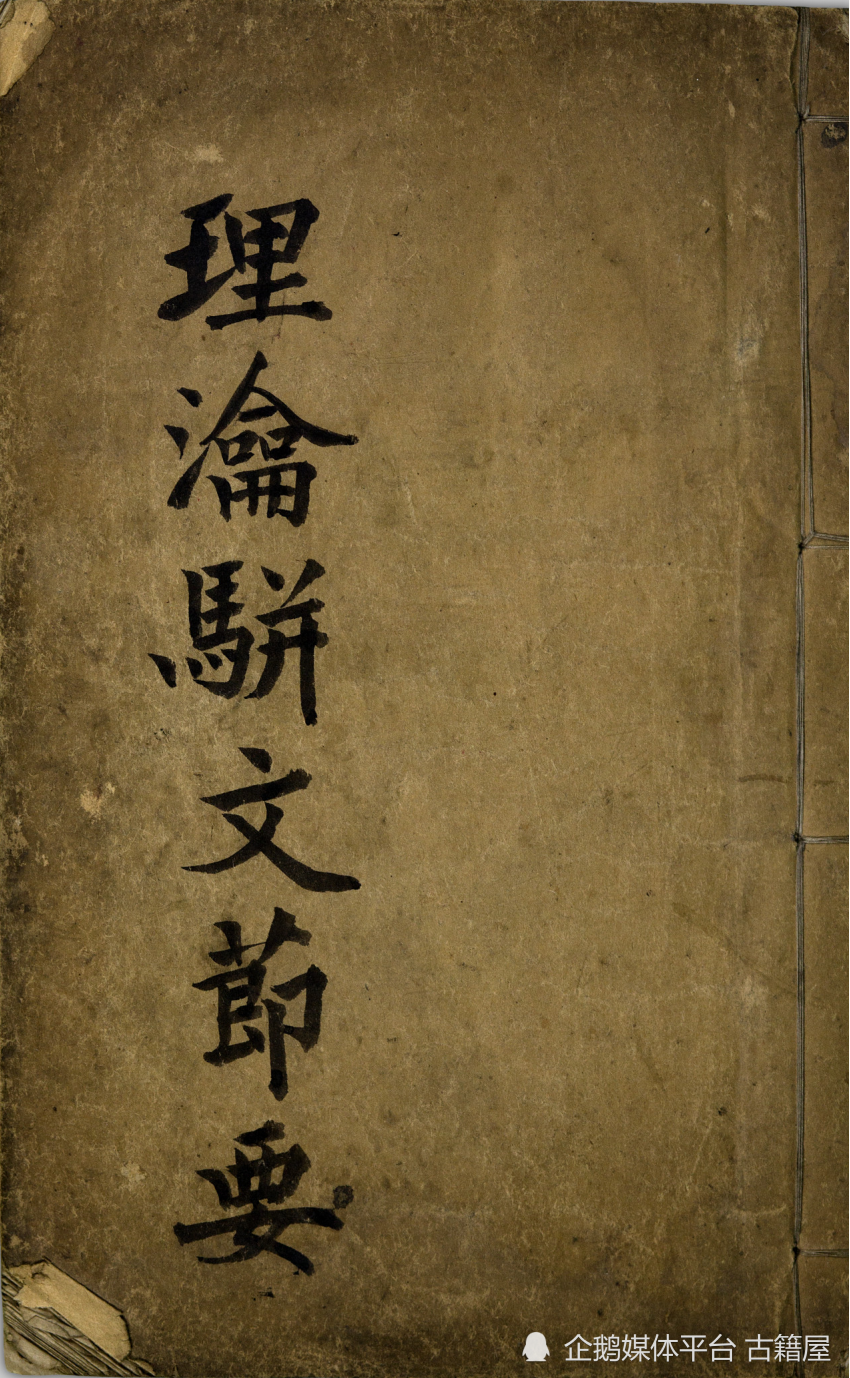 理瀹駢文莭要
企鹅媒体平台 古籍屋